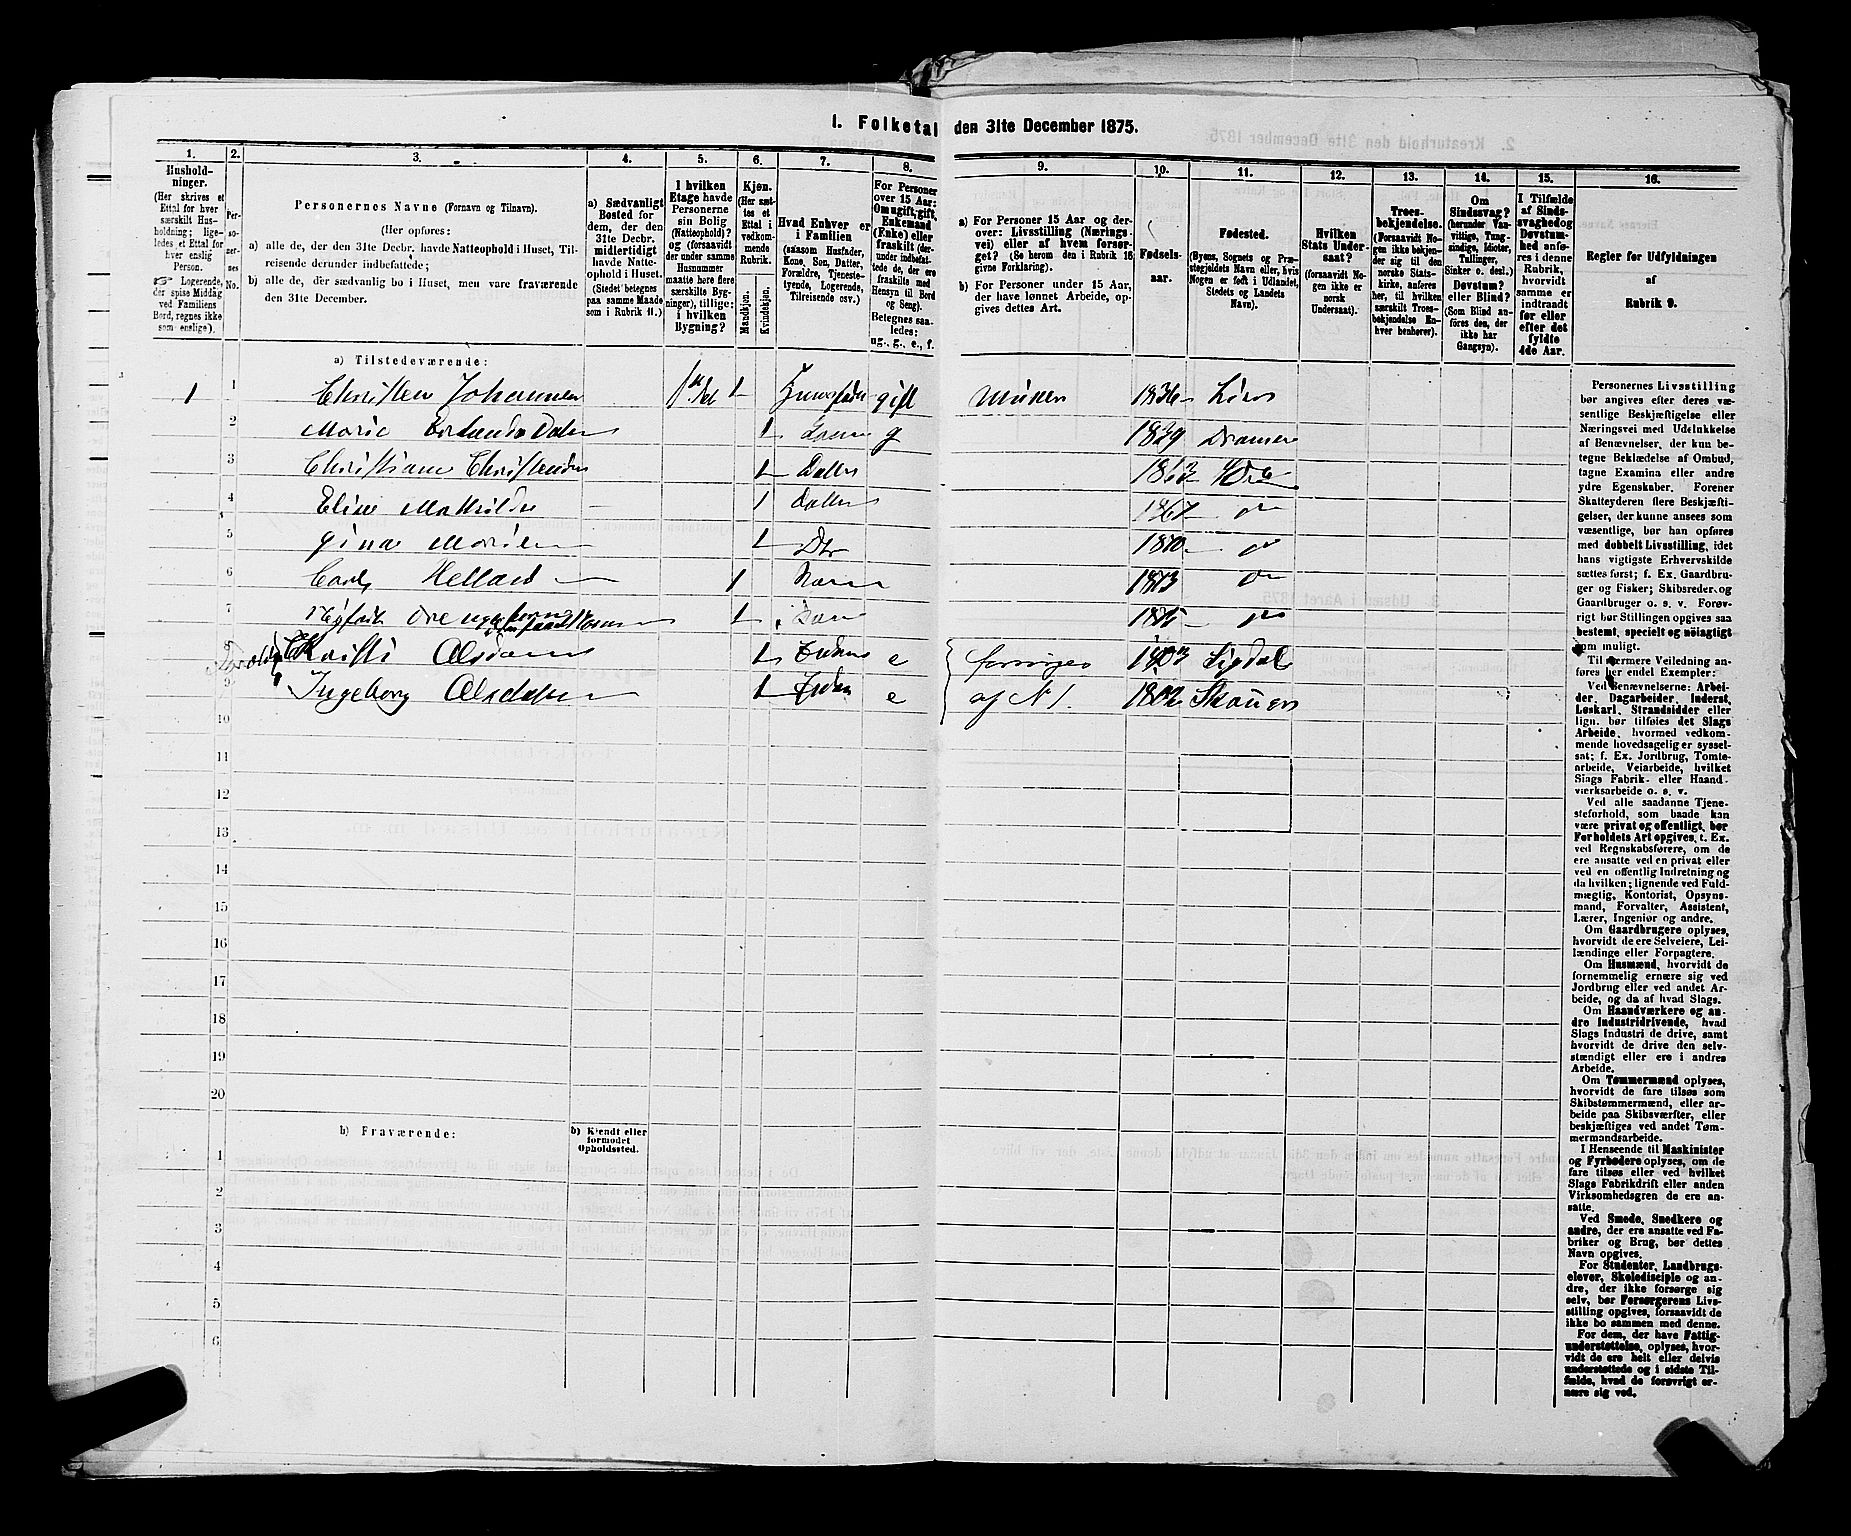 1. Folketal den 31te December 1875.
1.
Husholdninger.
(Her skrives et
Ettal for hver
særskilt Husholdning;
ligeledes et Ettal for
hver enslig
Person.
Logerende,
der spise Middag
ved Familiens
Bord, regnes ikke
som enslige).
2.
Personernes
No.
3.
Personernes Navne (Fornavn og Tilnavn).
(Her opføres:
a) alle de, der den 31te Decbr. havde Natteophold i Huset, Tilreisende
derunder indbefattede;
b) alle de, der sædvanlig bo i Huset, men vare fraværende
den 31te December.
4.
a) Sædvanligt
Bosted for
dem, der den
31te Decbr.
midlertidigt
havde Natteophold
i Huset.
(Stedet betegnes
paa samme Maade
som i Rubrik 11.)
5.
I hvilken
Etage havde
Personerne
sin Bolig
(Natteophold)?
og (forsaavidt
der under samme
Husnummer
maatte høre flere
særskilte Bygninger),
tillige:
i hvilken
Bygning?
6.
Kjøn.
(Her sættes
et
Ettal i
vedkommende
Rubrik.
Mandkjøn.
Kvindekjøn.
7.
Hvad Enhver er
i Familien
(saasom Husfader,
Kone, Søn, Datter,
Forældre, Tjenestetyende,
Logerende,
Tilreisende osv.)
8.
For Personer
over 15 Aar:
Om ugift, gift,
Enkemand
(Enke) eller
fraskilt (derunder
indbefattede
de, der ere
fraskilte med
Hensyn til Bord
og Seng).
Betegnes saaledes:
ug., g., e., f.
9.
a) For Personer 15 Aar og derover:
Livsstilling (Næringsvei)
eller af hvem forsørget?
(Se herom den i Rubrik 16
givne Forklaring).
b) For Personer under 15 Aar,
der have lønnet Arbeide, opgives
dettes Art.
10.
Fødselsaar.
11.
Fødested.
(Byens, Sognets og Præstegjeldets
Navn eller, hvis
Nogen er født i Udlandet,
Stedets og Landets
Navn).
12.
Hvilken
Stats Undersaat?
(forsaavidt Nogen
ikke er
norsk
Undersaat).
13.
Troesbekjendelse.
(Forsaavidt Nogen
ikke bekjender
sig til den
norske Statskirke,
anføres
her, til hvilken
særskilt Troesbekjendelse
Enhver
henhører).
14.
Om
Sindssvag?
(herunder Vanvittige,
Tungsindige,
Idioter,
Tullinger,
Sinker o. desl.)
Døvstum?
eller Blind?
(Som Blind anføres
den, der
ikke har
Gangsyn).
15.
I Tilfælde
af Sindssvaghed
og
Døvstumhed
anføres
i denne
Rubrik,
hvorvidt
samme er
indtraadt
før eller
efter det
fyldte
4de Aar.
16.
Regler for Udfyldningen
af
Rubrik 9.
a) Tilstedeværende:
1 1 Christen Johannesen 1 gift 1836 
2 Marie 1 Kone g 1839 Drammen
3 Christiane 1 Datter 1863
4 Eline Mathilde 1 Datter 1867 do
5 Gina Marie 1 Dtr 1870 do
6 Carl 1 1873 do
7 1 1875 do
8 Kristi Olsdatter 1 e forsørges 1803 Sigdal
9 Ingeborg Olsdatter 1 e af N 1. 1802
10
11
12
13
14
15
16
17
18
19
20
b) Fraværende:
b) Kjendt eller
formodet
Opholdssted.
1
2
3
4
5
6
Personernes Livsstilling
bør angives efter deres væsentlige
Beskjæftigelse eller
Næringsvei med Udelukkelse
af Benævnelser, der kun betegne
Beklædelse af Ombud,
tagne Examina eller andre
ydre Egenskaber. Forener
Skatteyderen flere Beskjæftigelser,
der kunne ansees som
væsentlige, bør han opføres
med dobbelt Livsstilling, idet
hans vigtigste Erhvervskilde
sættes først; f. Ex. Gaardbruger
og Fisker; Skibsreder og
Gaardbruger o. s. v. Forøvrigt
bør Stillingen opgives saa
bestemt, specielt og nøiagtigt
som muligt.
Til nærmere Veiledning anføres
her endel Exempler:
Ved Benævnelserne: Arbeider,
Dagarbeider, Inderst,
Løskarl, Strandsidder eller
lign. bør tilføies det Slags
Arbeide, hvormed vedkommende
hovedsagelig er sysselsat;
f. Ex. Jordbrug, Tomtearbeide,
Veiarbeide, hvilket
Slags Fabrik- eller Haandværksarbeide
o. s. v.
Ved alle saadanne Tjenesteforhold,
som baade kan
være privat og offentligt, bør
Forholdets Art opgives, t. Ex.
ved Regnskabsførere, om de
ere ansatte ved en privat eller
ved en offentlig Indretning og
da hvilken; lignende ved Fuldmægtig,
Kontorist, Opsynsmand,
Forvalter, Assistent,
Lærer, Ingeniør og andre.
Om Gaardbrugere oplyses,
hvorvidt de ere Selveiere, Leilændinge
eller Forpagtere.
Om Husmænd, hvorvidt de
fornemmelig ernære sig ved
Jordbrug eller ved andet Arbeide,
og da af hvad Slags.
Om Haandværkere og andre
Industridrivende, hvad
Slags Industri de drive, samt
hvorvidt de drive den selvstændigt
eller ere i andres
Arbeide.
Om Tømmermænd oplyses,
hvorvidt de fare tilsøs som
Skibstømmermænd, eller arbeide
paa Skibsværfter, eller
beskjæftiges ved andet Tømmermandsarbeide.
I Henseende til Maskinister
og Fyrbødere oplyses, om de
fare tilsøs eller ved hvilket
Slags Fabrikdrift eller anden
Virksomhedsgren de ere ansatte.
Ved Smede, Snedkere og
andre, der ere ansatte ved Fabriker
og Brug, bør dettes
Navn opgives.
For Studenter, Landbrugselever,
Skoledisciple og andre,
der ikke forsørge sig
selv, bør Forsørgerens Livsstilling
opgives, forsaavidt de
ikke bo sammen med denne.
For dem, der have Fattigunderstøttelse,
oplyses, hvorvidt
de ere helt eller delvis
understøttede og i sidste Tilfælde,
hvad de forøvrigt ernære
sig ved.